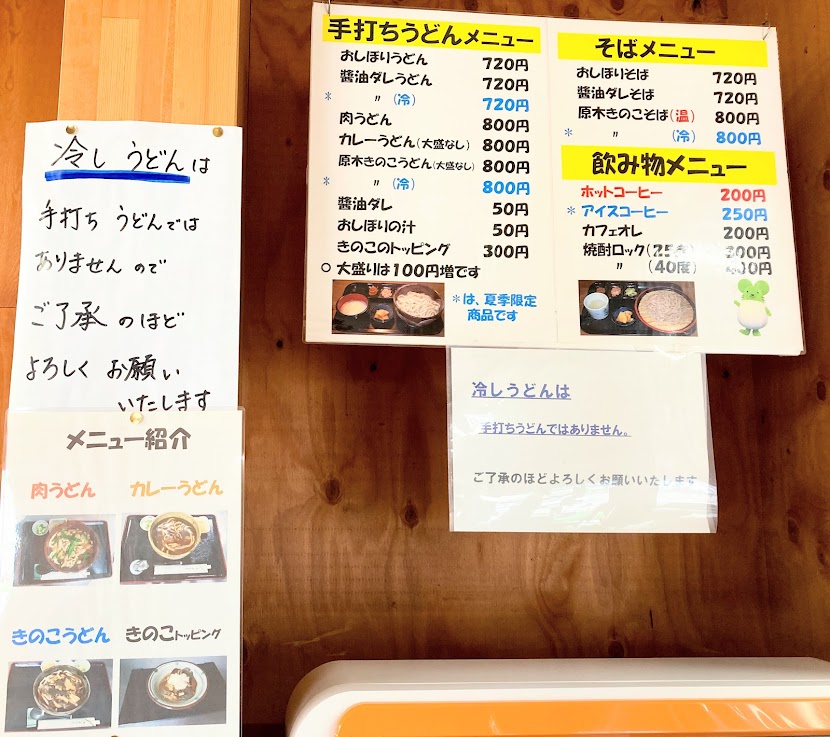 冷しうどんは
手打ちうどんでは
ありませんので
ご了承のほど
よろしくお願い
いたします
メニュー紹介
肉うどん カレーうどん
きのこうどん きのこトッピング
手打ちうどんメニュー
おしぼりうどん 720円
醬油ダレうどん 720円
* 〃 (冷) 720円
肉うどん 800円
カレーうどん(大盛なし) 800円
原木きのこうどん(大盛なし) 800円
* 〃 (冷) 800円
醬油ダレ 50円
おしぼりの汁 50円
きのこのトッピング 300円
○ 大盛りは100円増です
*は、夏季限定
商品です
そばメニュー
おしぼりそば 720円
醬油ダレそば 720円
原木きのこそば(温) 800円
* 〃 (冷) 800円
飲み物メニュー
ホットコーヒー 200円
* アイスコーヒー 250円
カフェオレ 200円
焼酎ロック(25度) 300円
〃 (40度) 400円
冷しうどんは
手打ちうどんではありません。
ご了承のほどよろしくお願いいたします